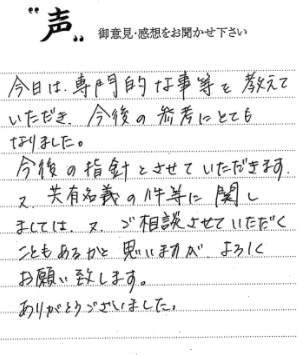 "声"
御意見・感想をお聞かせ下さい
今日は、専門的な事等を教えて
いただき、今後の参考にとても
なりました。
今後の指針とさせていただきます。
又、共有名義の件等に関し
ましては、又、ご相談させていただく
こともあるかと思いますが、よろしく
お願い致します。
ありがとうございました。